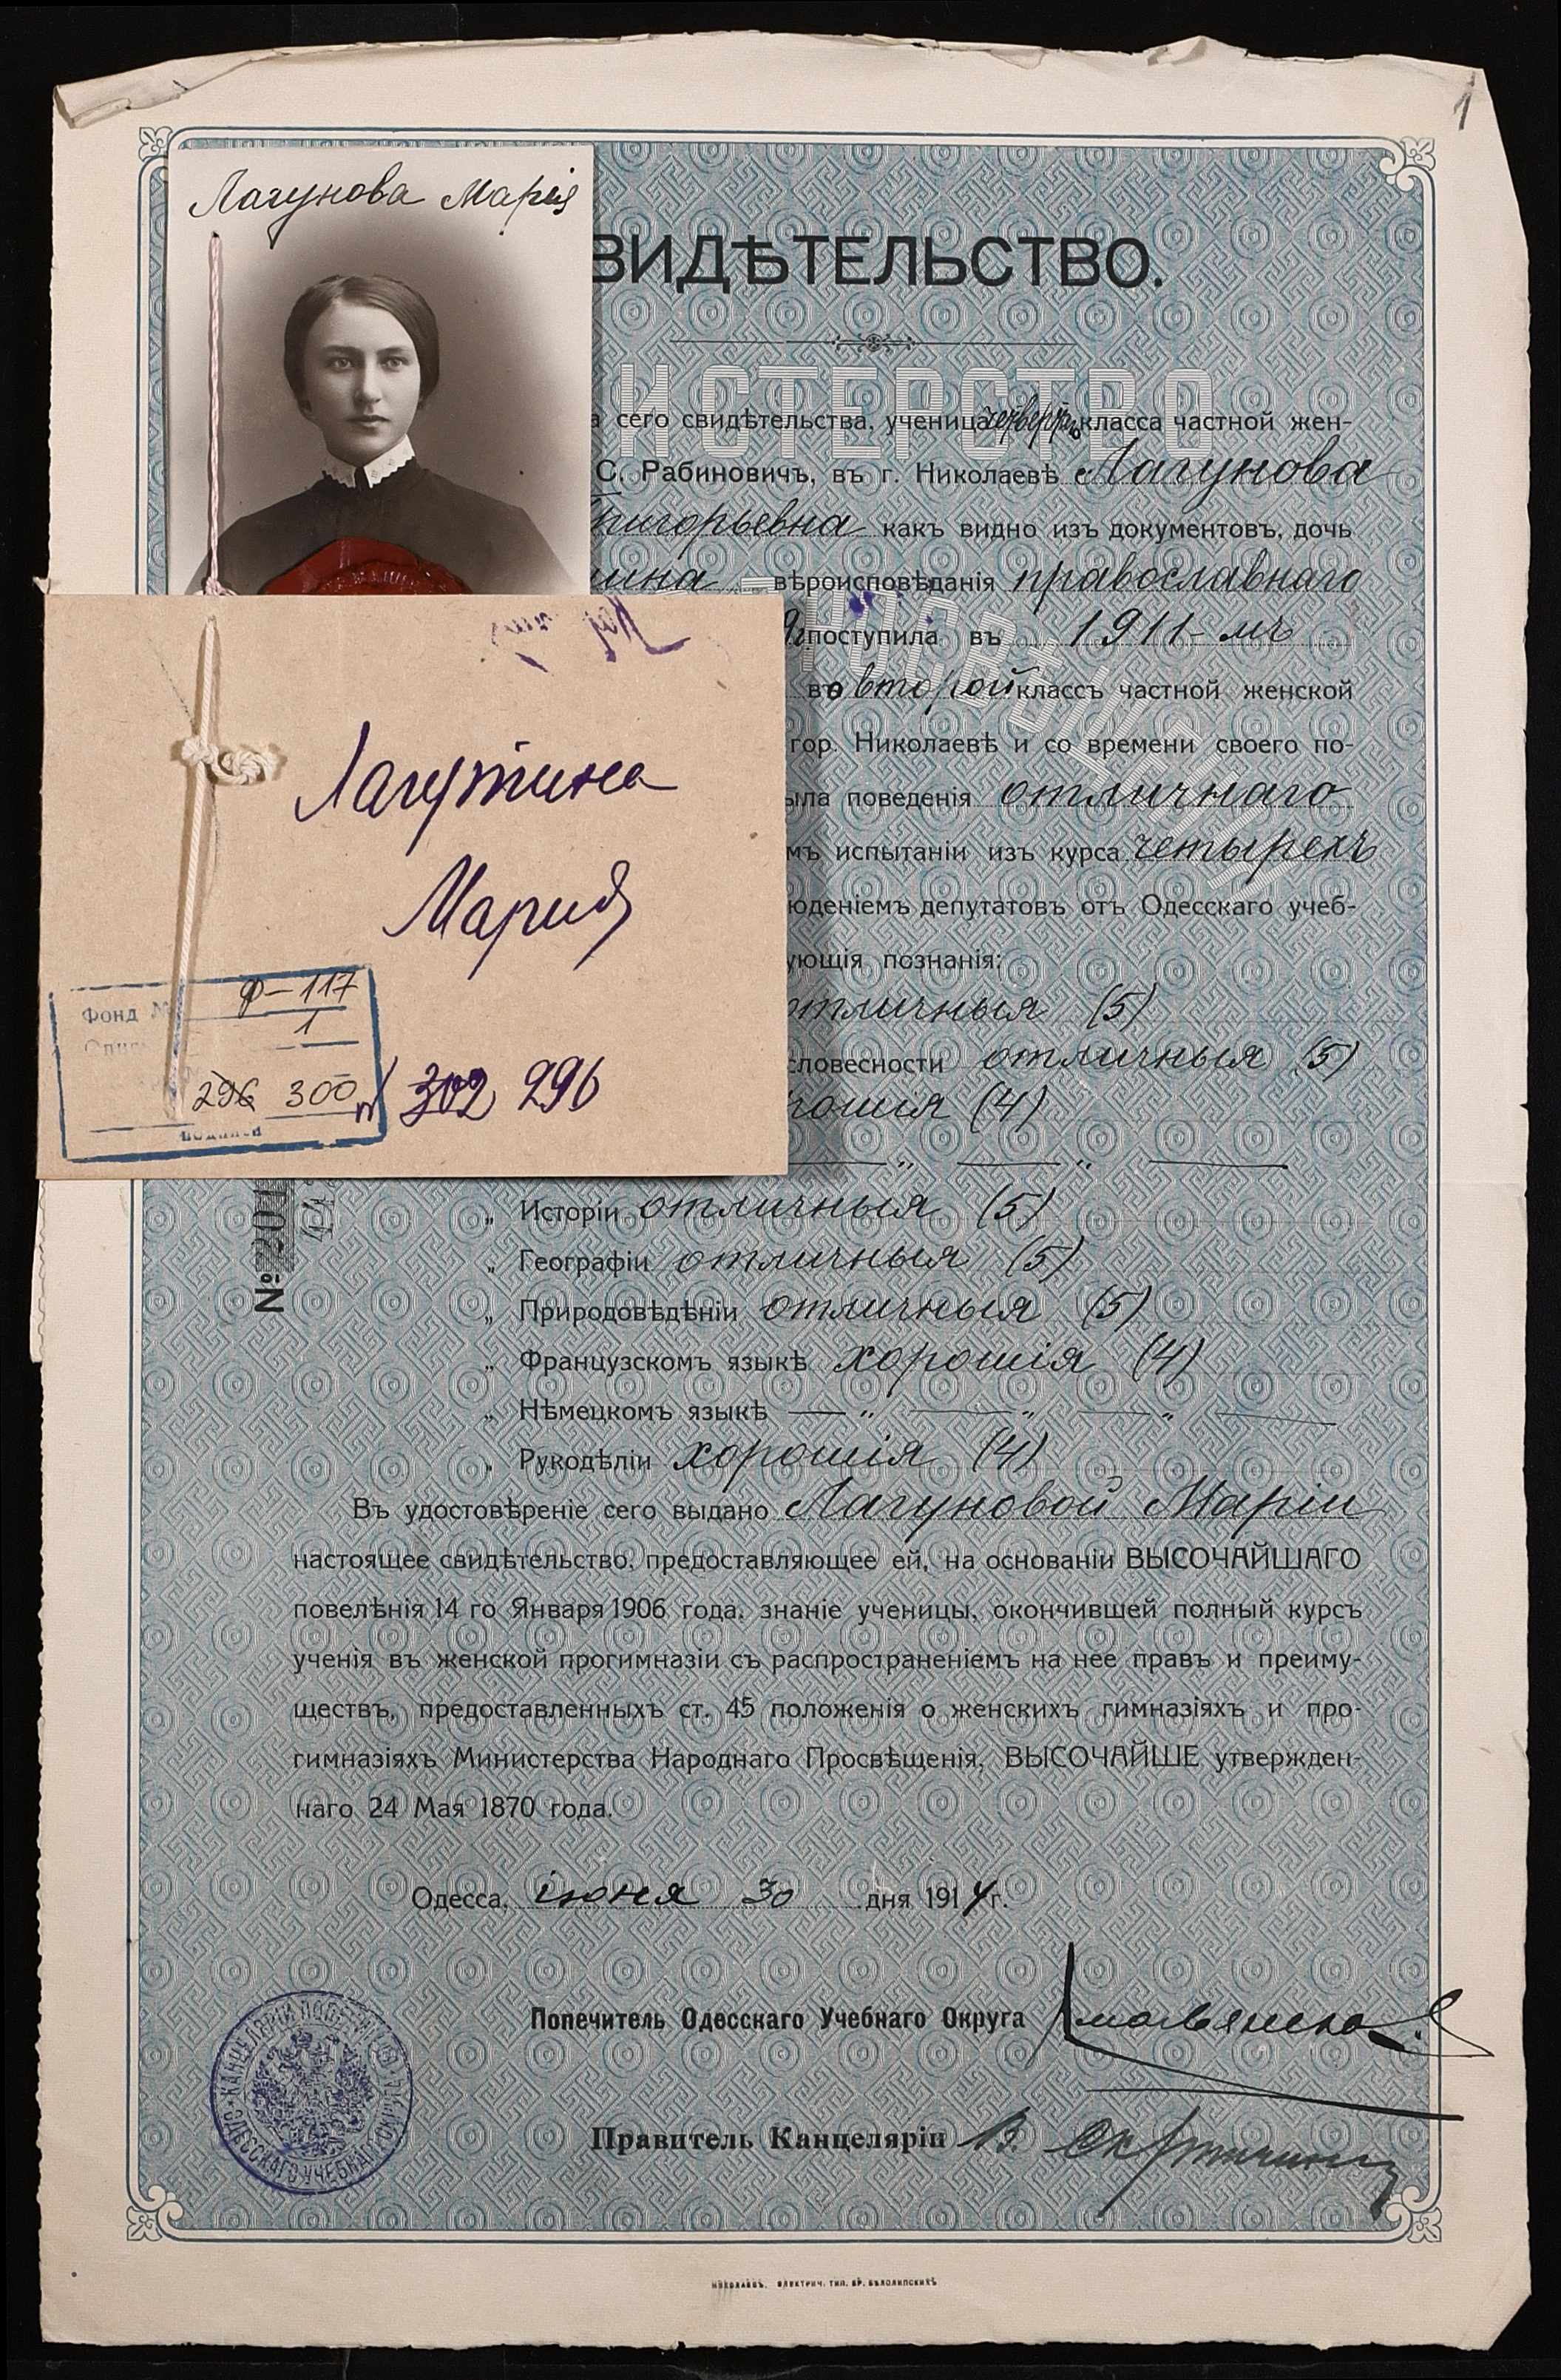 1
Лагунова Марія
ВИДѢТЕЛЬСТВО.
ИСТЕРСТВО
а сего свидѣтельства, ученица класса частной жен-
С. Рабиновичъ, въ г. Николаевѣ Лагунова
Григорьевна какъ видно изъ документовъ, дочь
ина вѣроисповѣданія православнаго
поступила въ 1911-мъ
во второй классъ частной женской
гор. Николаевѣ и со времени своего по-
ыла поведенія отличнаго
мъ испытаніи изъ курса четырехъ
юденіемъ депутатовъ отъ Одесскаго учеб-
ующія познанія:
отличныя (5)
словесности отличныя (5)
рошія (4)
Лагутина
Мария
Фонд № Ф-117
1
296 300 302 296
№
„ Исторіи отличныя (5)
„ Географіи отличныя (5)
„ Природовѣдѣніи отличныя (5)
„ Французскомъ языкѣ хорошія (4)
„ Нѣмецкомъ языкѣ — „ — „ — „ —
„ Рукодѣліи хорошія (4)
Въ удостовѣреніе сего выдано Лагуновой Маріи
настоящее свидѣтельство, предоставляющее ей, на основаніи ВЫСОЧАЙШАГО
повелѣнія 14 го Января 1906 года, знаніе ученицы, окончившей полный курсъ
ученія въ женской прогимназіи съ распространеніемъ на нее правъ и преиму-
ществъ, предоставленныхъ ст. 45 положенія о женскихъ гимназіяхъ и про-
гимназіяхъ Министерства Народнаго Просвѣщенія, ВЫСОЧАЙШЕ утвержден-
наго 24 Мая 1870 года.
Одесса, іюня 30 дня 1914 г.
Попечитель Одесскаго Учебнаго Округа
Правитель Канцеляріи В.
КАНЦЕЛЯРІИ ПОПЕЧИТЕЛЯ ОДЕССКАГО УЧЕБНАГО ОКРУГА
НИКОЛАЕВЪ, ЭЛЕКТРИЧ. ТИП. БР. БѢЛОЛИПСКИХЪ